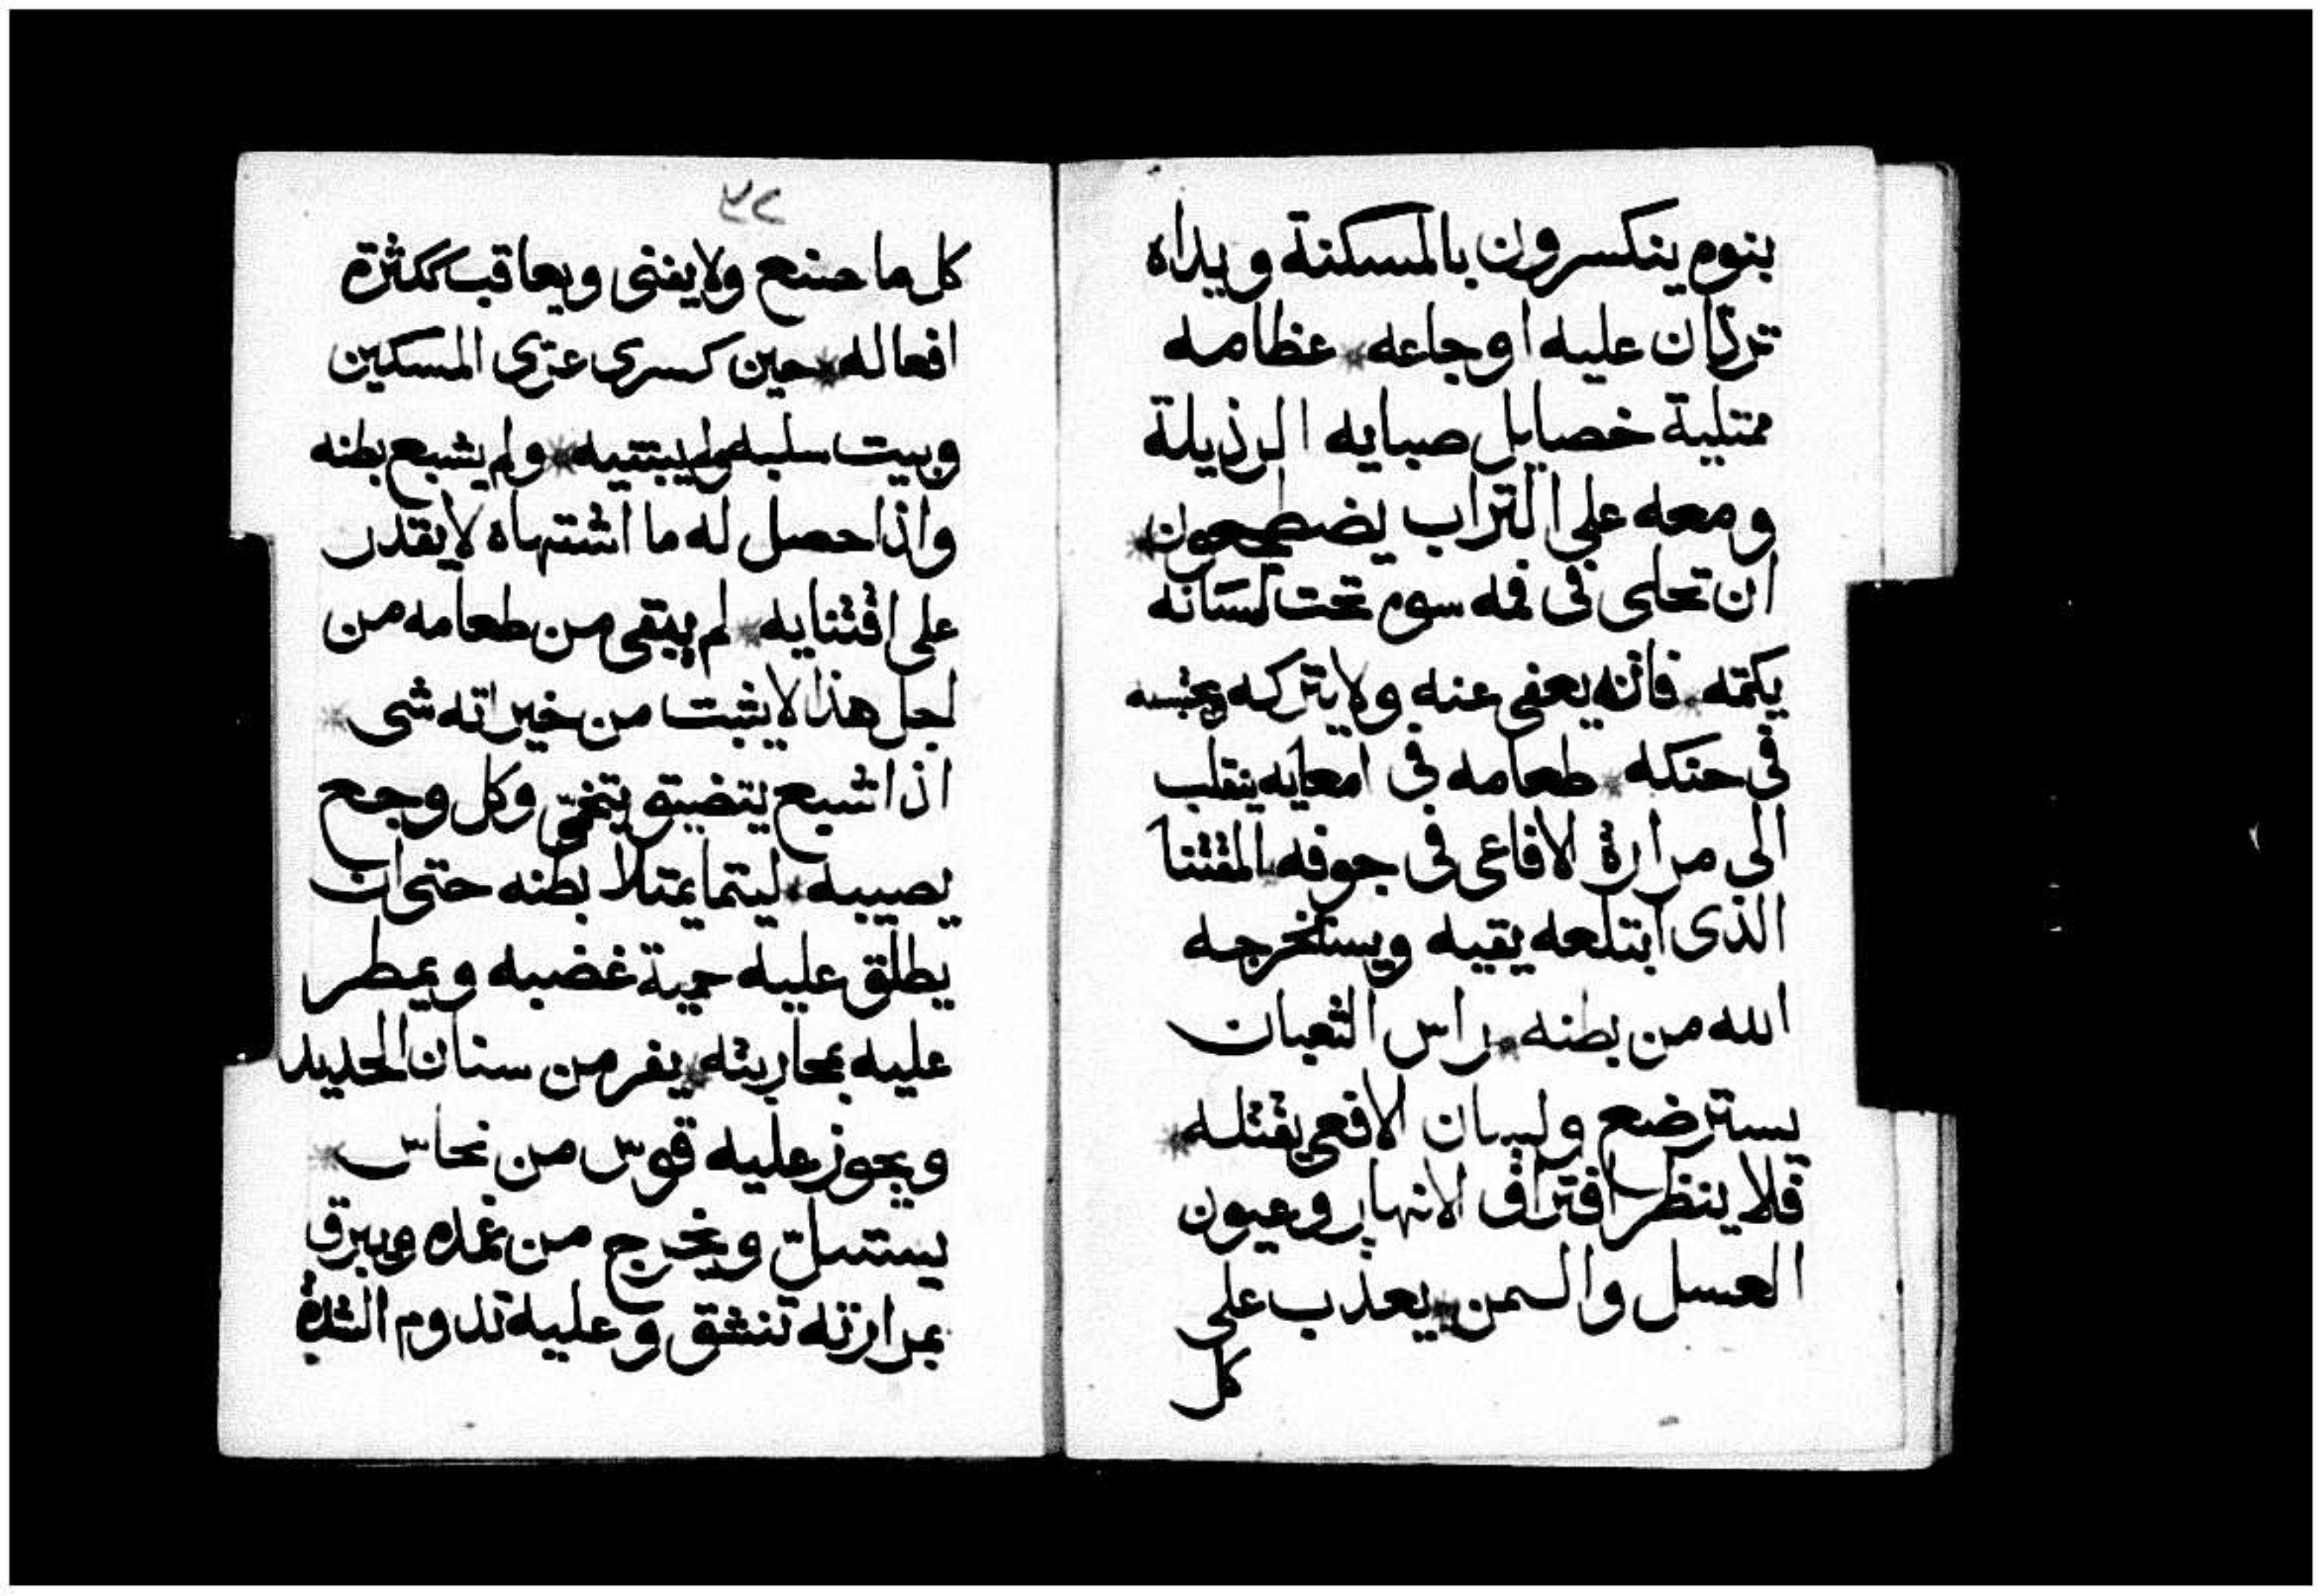 بنوم ينكسرون بالمسكنة ويداه
تردان عليه اوجاعه * عظامه
ممتلية خصايل صبايه الرذيلة
ومعه على التراب يضطجعون *
ان تحلى فى فمه سوم تحت لسانه
يكمته * فانه يعفى عنه ولا يتركه ويحبسه
فى حنكه * طعامه فى امعايه ينقلب
الى مرارة الافاعى فى جوفه * المقتنا
الذى ابتلعه يقيه ويستخرجه
الله من بطنه * راس الثعبان
يسترضع ولسان الافعى يقتله *
فلا ينظر افتراق الانهار وعيون
العسل والسمن * يعذب على
كل
٢٢
كل ما صنع ولا يفنى ويعاقب ككثرة
افعاله * حين كسرى عترى المسكين
وبيت سلبه ولم يبتنيه * ولم يشبع بطنه
واذا حصل له ما اشتهاه لا يقدر
على اقتنايه * لم يبقى من طعامه من
لجل هذا لا يثبت من خيراته شى *
اذا شبع يتضيق يتخمّ وكل وجع
يصيبه * ليتما يمتلا بطنه حتى ان
يطلق عليه حمية غضبه ويمطر
عليه بمحاربته * يفر من سنان الحديد
ويجوز عليه قوس من نحاس *
يستسلّ ويخرج من غمده ويبرق
بمرارته تنشق وعليه تدوم الشدة